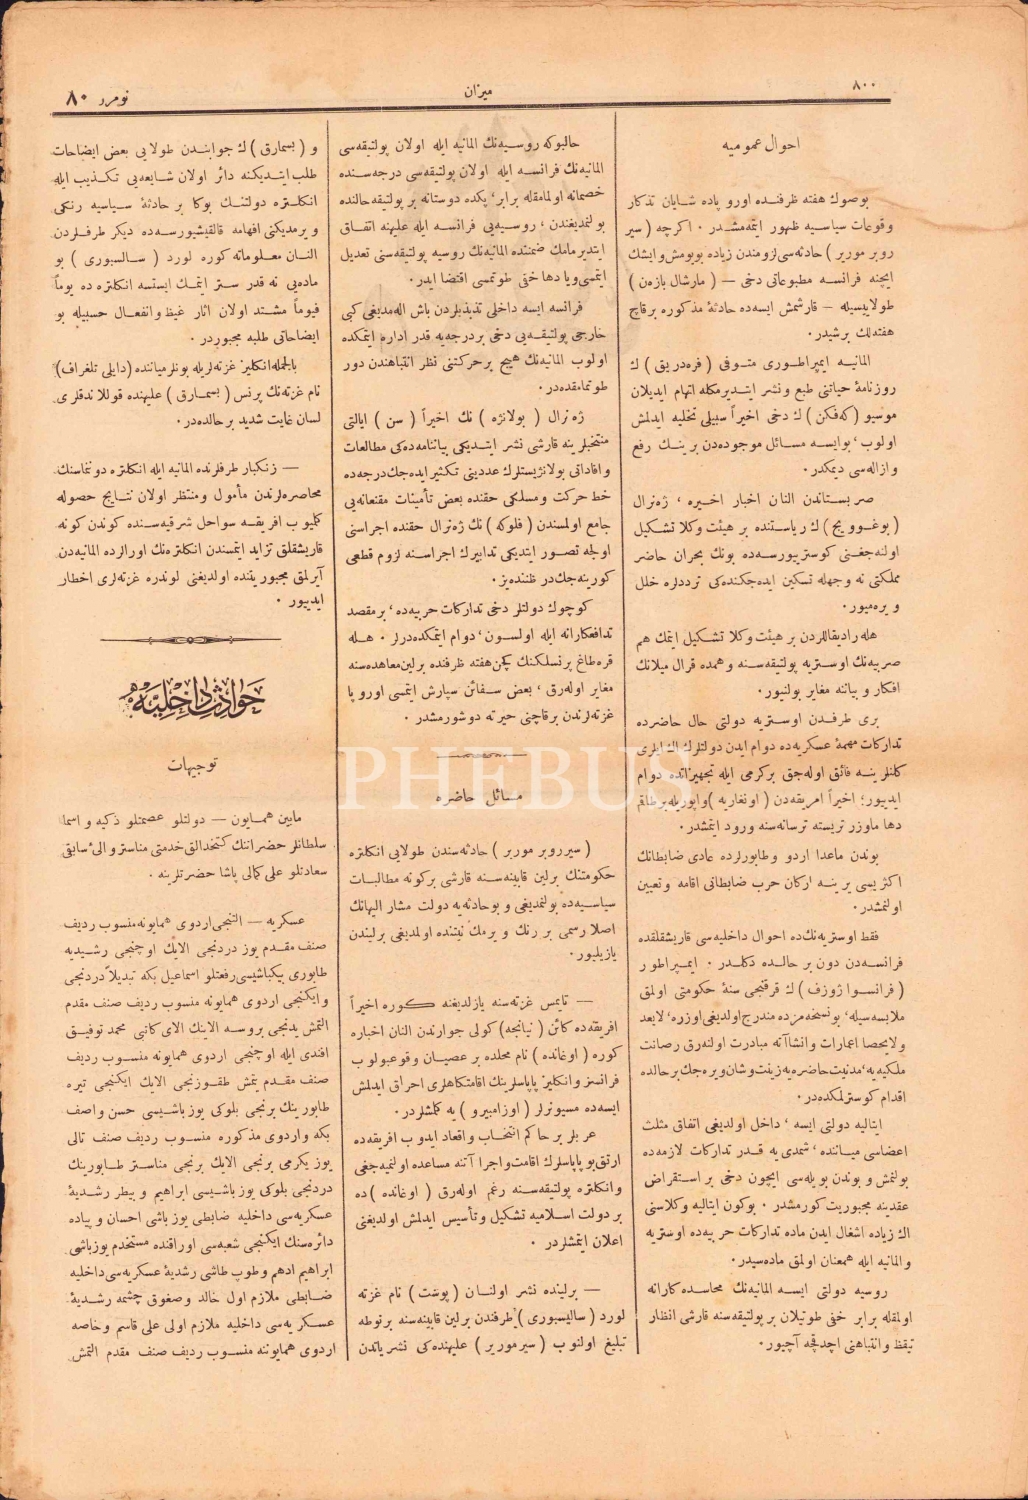 ٨٠٠
ميزان
نومرو ٨٠
احوال عموميه
بوصوك هفته ظرفنده اوروپاده شايان تذكار
وقوعات سياسيه ظهور ايتمه‌مشدر . اكرچه ( سير
روبر موربر ) حادثه‌سی لزومندن زياده بويومش وايشك
ايچنه فرانسه مطبوعاتی دخی — ( مارشال بازه‌ن )
طولاييسيله — قارشمش ايسه‌ده حادثهٔ مذكوره برقاچ
هفته‌لك برشيدر .
المانيه ايمپراطوری متوفی ( فره‌دريق ) ك
روزنامهٔ حياتنی طبع و نشر ايتديرمكله اتهام ايديلان
موسيو ( كه‌فكن ) ك دخی اخيراً سبيلی تخليه ايدلمش
اولوب ، بوايسه مسائل موجوده‌دن برينك رفع
وازاله‌سی ديمكدر .
صربستاندن النان اخبار اخيره ، ژه‌نرال
( بوغوويچ ) ك رياستنده بر هيئت وكلا تشكيل
اولنه‌جغنی كوستريیورسه‌ده بونك بحران حاضر
مملكتی نه وجهله تسكين ايده‌جكنده‌كی ترددلره خلل
ويره‌ميور .
هله راديقاللردن بر هيئت وكلا تشكيل ايتمك هم
صربيه‌نك اوستريه پولتيقه‌سنه و همده قرال ميلانك
افكار و بياننه مغاير بولنيور .
بری طرفدن اوستريه دولتی حال حاضرده
تداركات مهمهٔ عسكريه‌ده دوام ايدن دولتلرك الك ايلری
كلنلرينه فائق اوله‌جق بركرمی ايله تجهيزاتده دوام
ايدييور ؛ اخيراً امريقه‌دن ( اونغاريه ) واپوريله برطاقم
دها ماوزر تريسته ترسانه‌سنه ورود ايتمشدر .
بوندن ماعدا اردو و طابورلرده عادی ضابطانك
اكثريسی يرينه اركان حرب ضابطانی اقامه وتعيين
اولنمشدر .
فقط اوستريه‌نك‌ده احوال داخليه‌سی قاريشقلقده
فرانسه‌دن دون بر حالده دكلدر . ايمپراطور
( فرانسوا ژوزف ) ك قرقنجی سنهٔ حكومتی اولمق
ملابسه‌سيله ، بونسخه‌مزده مندرج اولديغی اوزره ، لايعد
ولايحصا اعمارات وانشاآته مبادرت اولنه‌رق رصانت
ملكيه‌يه ، مدنيت حاضره‌يه زينت وشان ويره‌جك برحالده
اقدام كوسترلمكده‌در .
ايتاليه دولتی ايسه ، داخل اولديغی اتفاق مثلث
اعضاسی ميانــنده ، شمدی‌يه قــدر تداركات لازمه‌ده
بولنمش و بوندن بويله‌سی ايچون دخی بر استقراض
عقدينه مجبوريت كورمشدر . بوكون ايتاليه وكلاسنی
الك زياده اشغال ايدن ماده تداركات حربيه‌ده اوستريه
والمانيه ايله همعنان اولمق ماده‌سيدر .
روسيه دولتی ايسه المانيه‌نك محاسده‌كارانه
اولمقله برابر خفی طوتيلان بر پولتيقه‌سنه قارشی انظار
تيقظ وانتباهنی اچدقجه آچيور .
حالبوكه روسيه‌نك المانيه ايله اولان پولتيقه‌سی
المانيه‌نك فرانسه ايله اولان پولتيقه‌سی درجه‌سنده
خصمانه اولمامقله برابر ، پكده دوستانه بر پولتيقه حالنده
بولنمديغندن ، روسيه‌يی فرانسه ايله عليهنه اتفاق
ايتديرمامك ضمننده المانيه‌نك روسيه پولتيقه‌سنی تعديل
ايتمسی ويا دها خفی طوتمسی اقتضا ايدر .
فرانسه ايسه داخلی تذبذبلردن باش اله‌مديغی كبی
خارجی پولتيقه‌يی دخی بردرجه‌يه قدر اداره ايتمكده
اولوب المانيه‌نك هيچ برحركتنی نظر انتباهندن دور
طوتمامقده‌در .
ژه‌نرال ( بولانژه ) نك اخيراً ( سن ) ايالتی
منتخبلرينه قارشی نشر ايتديكی بياننامه‌ده‌كی مطالعات
وافاداتی بولانژيستلرك عددينی تكثير ايده‌جك درجه‌ده
خط حركت ومسلكی حقنده بعض تأمينات مقنعانه‌يی
جامع اولمسندن ( فلوكه ) نك ژه‌نرال حقنده اجراسنی
اولجه تصور ايتديكی تدابيرك اجراسنه لزوم قطعی
كورينه‌جك‌در ظننده‌يز .
كوچوك دولتلر دخی تداركات حربيه‌ده ، برمقصد
تدافعكارانه ايله اولسون ، دوام ايتمكده‌درلر . هــله
قره‌طاغ پرنسلكنك كچن هفته ظرفنده برلين معاهده‌سنه
مغاير اوله‌رق ، بعض سفائن سپارش ايتمسی اوروپا
غزته‌لرندن برقاچنی حيرته دوشورمشدر .
مسائل حاضره
( سيرروبر موربر ) حادثه‌سندن طولايی انكلتره
حكومتنك برلين قابينه‌سنه قارشی بركونه مطالبات
سياسيه‌ده بولنمديغی و بوحادثه‌يه دولت مشار اليهانك
اصلا رسمی بر رنك ويرمك نيتنده اولمديغی برليندن
يازيلیور .
— تايمس غزته‌سنه يازلديغنه كوره اخيراً
افريقه‌ده كائن ( نيانجه ) كولی جوارندن النان اخباره
كوره ( اوغانده ) نام محلده بر عصيان وقوعبولوب
فرانسز وانكليز پاپاسلرينك اقامتكاهلری احراق ايدلمش
ايسه‌ده مسيونرلر ( اوزامبيرو ) يه كلمشلردر .
عربلر بر حاكم انتخاب واقعاد ايدوب افريقه‌ده
ارتق بو پاپاسلرك اقامت واجرا آتنه مساعده اولنميه‌جغی
وانكلتره پولتيقه‌سنه رغم اوله‌رق ( اوغانده ) ده
بر دولت اسلاميه تشكيل وتأسيس ايدلمش اولديغنی
اعلان ايتمشلردر .
— برلينده نشر اولنان ( پوست ) نام غزته
لورد ( ساليسبوری ) طرفندن برلين قابينه‌سنه برنوطه
تبليغ اولنوب ( سيرموربر ) عليهنده‌كی نشرياتدن
و ( بسمارق ) ك جوابندن طولايی بعض ايضاحات
طلب ايتديكنه دائر اولان شايعه‌يی تكذيب ايله
انكلتره دولتنك بوكا بر حادثهٔ سياسيه رنكی
ويرمديكنی افهامه قالقيشيورسه‌ده ديكر طرفلردن
النان معلوماته كوره لورد ( سالسبوری ) بو
ماده‌يی نه قدر ستر ايتمك ايستسه انكلتره ده يوماً
فيوماً مشتد اولان اثار غيظ وانفعال حسبيله بو
ايضاحاتی طلبه مجبوردر .
بالجمله انكليز غزته‌لريله بونلر مياننده ( دايلی تلغراف )
نام غزته‌نك پرنس ( بسمارق ) عليهنده قوللاندقلری
لسان غايت شديد بر حالده‌در .
— زنكبار طرفلرنده المانيه ايله انكلتره دوننماسنك
محاصره‌لرندن مأمول ومنتظر اولان نتايج حصوله
كلميوب افريقه سواحل شرقيه‌سنده كوندن كونه
قاريشقلق تزايد ايتمسندن انكلتره‌نك اورالرده المانيه‌دن
آيرلمق مجبوريتنده اولديغنی لوندره غزته‌لری اخطار
ايدييور .
حوادث داخليه
توجيهات
مابين همايون — دولتلو عصمتلو ذكيه و اسما
سلطانلر حضراتنك كتخدالق خدمتی مناستر والیٔ سابقی
سعادتلو علی كمالی پاشا حضرتلرينه .
عسكريه — التنجی اردوی همايونه منسوب رديف
صنف مقدم يوز دردنجی الايك اوچنجی رشيديه
طابوری بيكباشيسی رفعتلو اسماعيل بك تبديلاً دردنجی
وايكنجی اردوی همايونه منسوب رديف صنف مقدم
التمش يدنجی بروسه الاينك الای كاتبی محمد توفيق
افندی ايله اوچنجی اردوی همايونه منسوب رديف
صنف مقدم يتمش طقوزنجی الايك ايكنجی تيره
طابورينك برنجی بلوكی يوزباشيسی حسن واصف
بكه واردوی مذكوره منسوب رديف صنف تالی
يوز يكرمی برنجی الايك برنجی مناستر طابورينك
دردنجی بلوكی يوزباشيسی ابراهيم و بيطر رشديهٔ
عسكريه‌سی داخليه ضابطی يوزباشی احسان و پياده
دائره‌سنك ايكنجی شعبه‌سی اوراقنده مستخدم يوزباشی
ابراهيم ادهم و طوب طاشی رشديهٔ عسكريه‌سی داخليه
ضابطی ملازم اول خالد و صغوق چشمه رشديهٔ
عسكريه‌سی داخليه ملازم اولی علی قاسم وخاصه
اردوی همايوننه منسوب رديف صنف مقدم التمش
PHEBUS